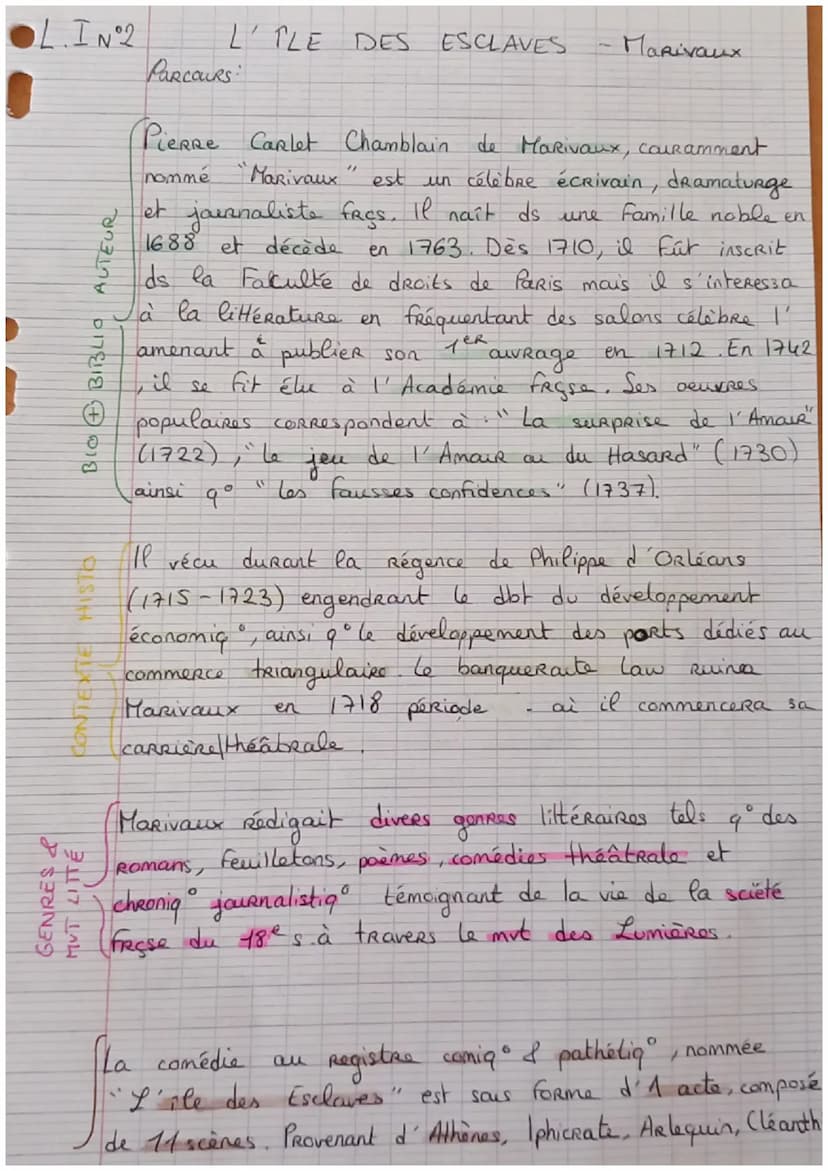 L.I N°2 L'ÎLE DES ESCLAVES - Marivaux
Parcours:
BIO + BIBLIO AUTEUR
Pierre Carlet Chamblain de Marivaux, couramment
nommé "Marivaux" est un célèbre écrivain, dramaturge
et journaliste frçs. Il naît ds une famille noble en
1688 et décède en 1763. Dès 1710, il fût inscrit
ds la Faculté de droits de Paris mais il s'interessa
à la littérature en fréquentant des salons célèbre l'
amenant à publier son 1er ouvrage en 1712. En 1742
, il se fit élu à l'Académie frçse. Ses oeuvres
populaires correspondent à : "La surprise de l'Amour"
(1722), "le jeu de l'Amour ou du Hasard" (1730)
ainsi q° "les fausses confidences" (1737).
CONTEXTE HISTO
Il vécu durant la Régence de Philippe d'Orléans
(1715-1723) engendrant le dbt du développement
économiq°, ainsi q° le développement des ports dédiés au
commerce triangulaire. Le banqueroute Law ruinea
Marivaux en 1718 période - où il commencera sa
carrière théâtrale.
GENRES & MVT LITTÉ
Marivaux rédigait divers genres littéraires tels q° des
romans, feuilletons, poèmes, comédies théâtrale et
chroniq° journalistiq° témoignant de la vie de la sciété
frçse du 18e s. à travers le mvt des Lumières.
La comédie au registre comiq° & pathétiq°, nommée
"L'île des Esclaves" est sous forme d'1 acte, composé
de 11 scènes. Provenant d'Athènes, Iphicrate, Arlequin, Cléanth